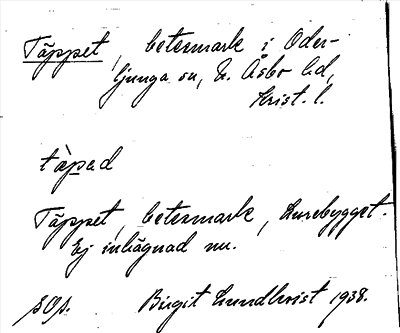 Täppet, betesmark i Oder-
ljunga sn, N. Åsbo hd,
Krist. l.
täpad
Täppet, betesmark, Lurebygget.
Ej inhägnad nu.
Birgit Lundkvist 1938.